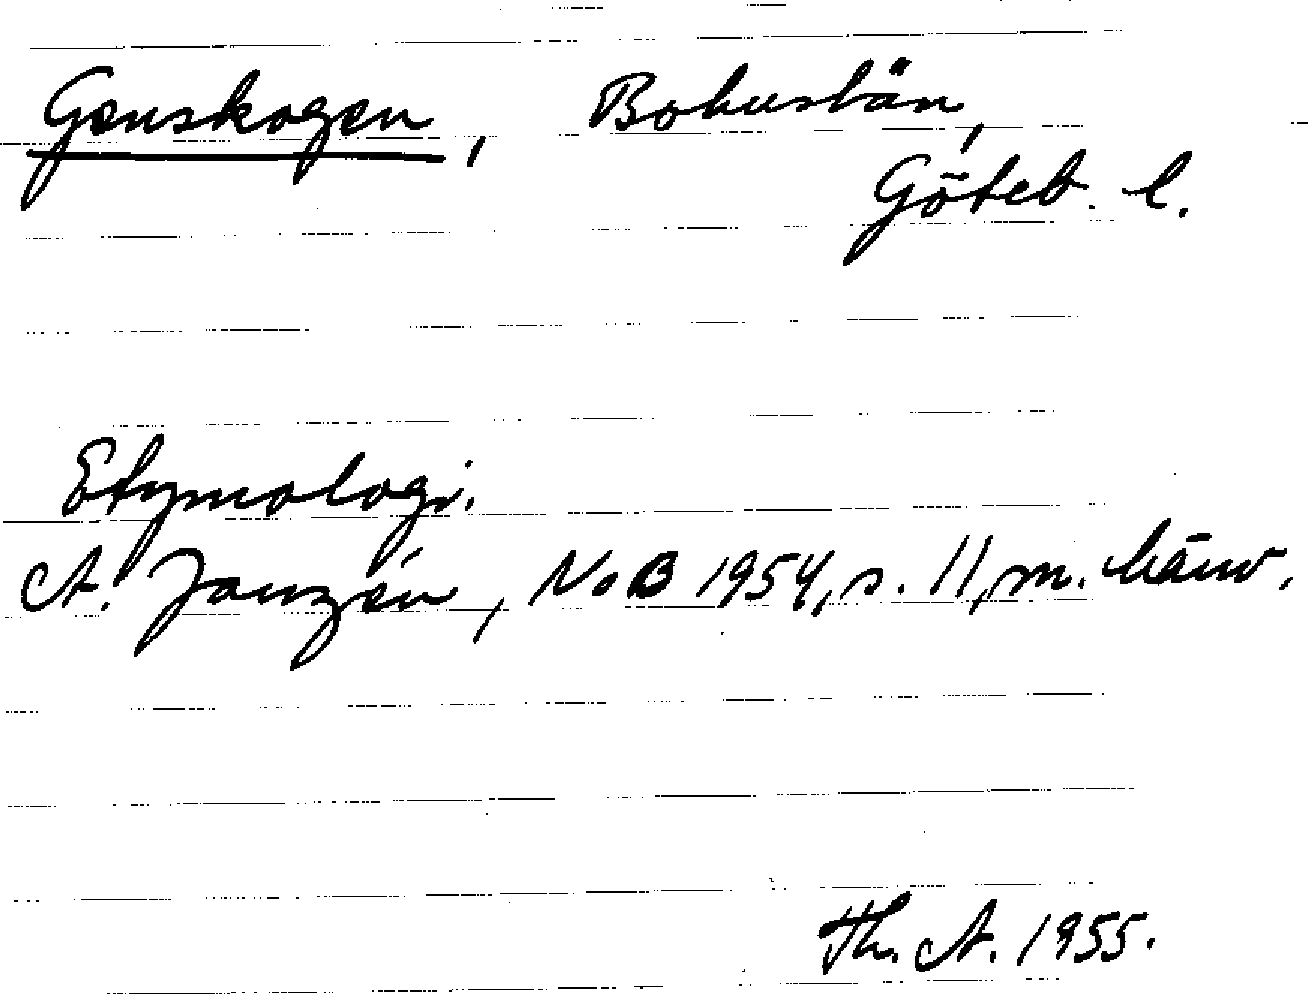 Genskogen, Bohuslän,
Göteb. l.
Etymologi.
A. Janzén, NoB 1954, s. 11, m. hänv.
Th. A. 1955.